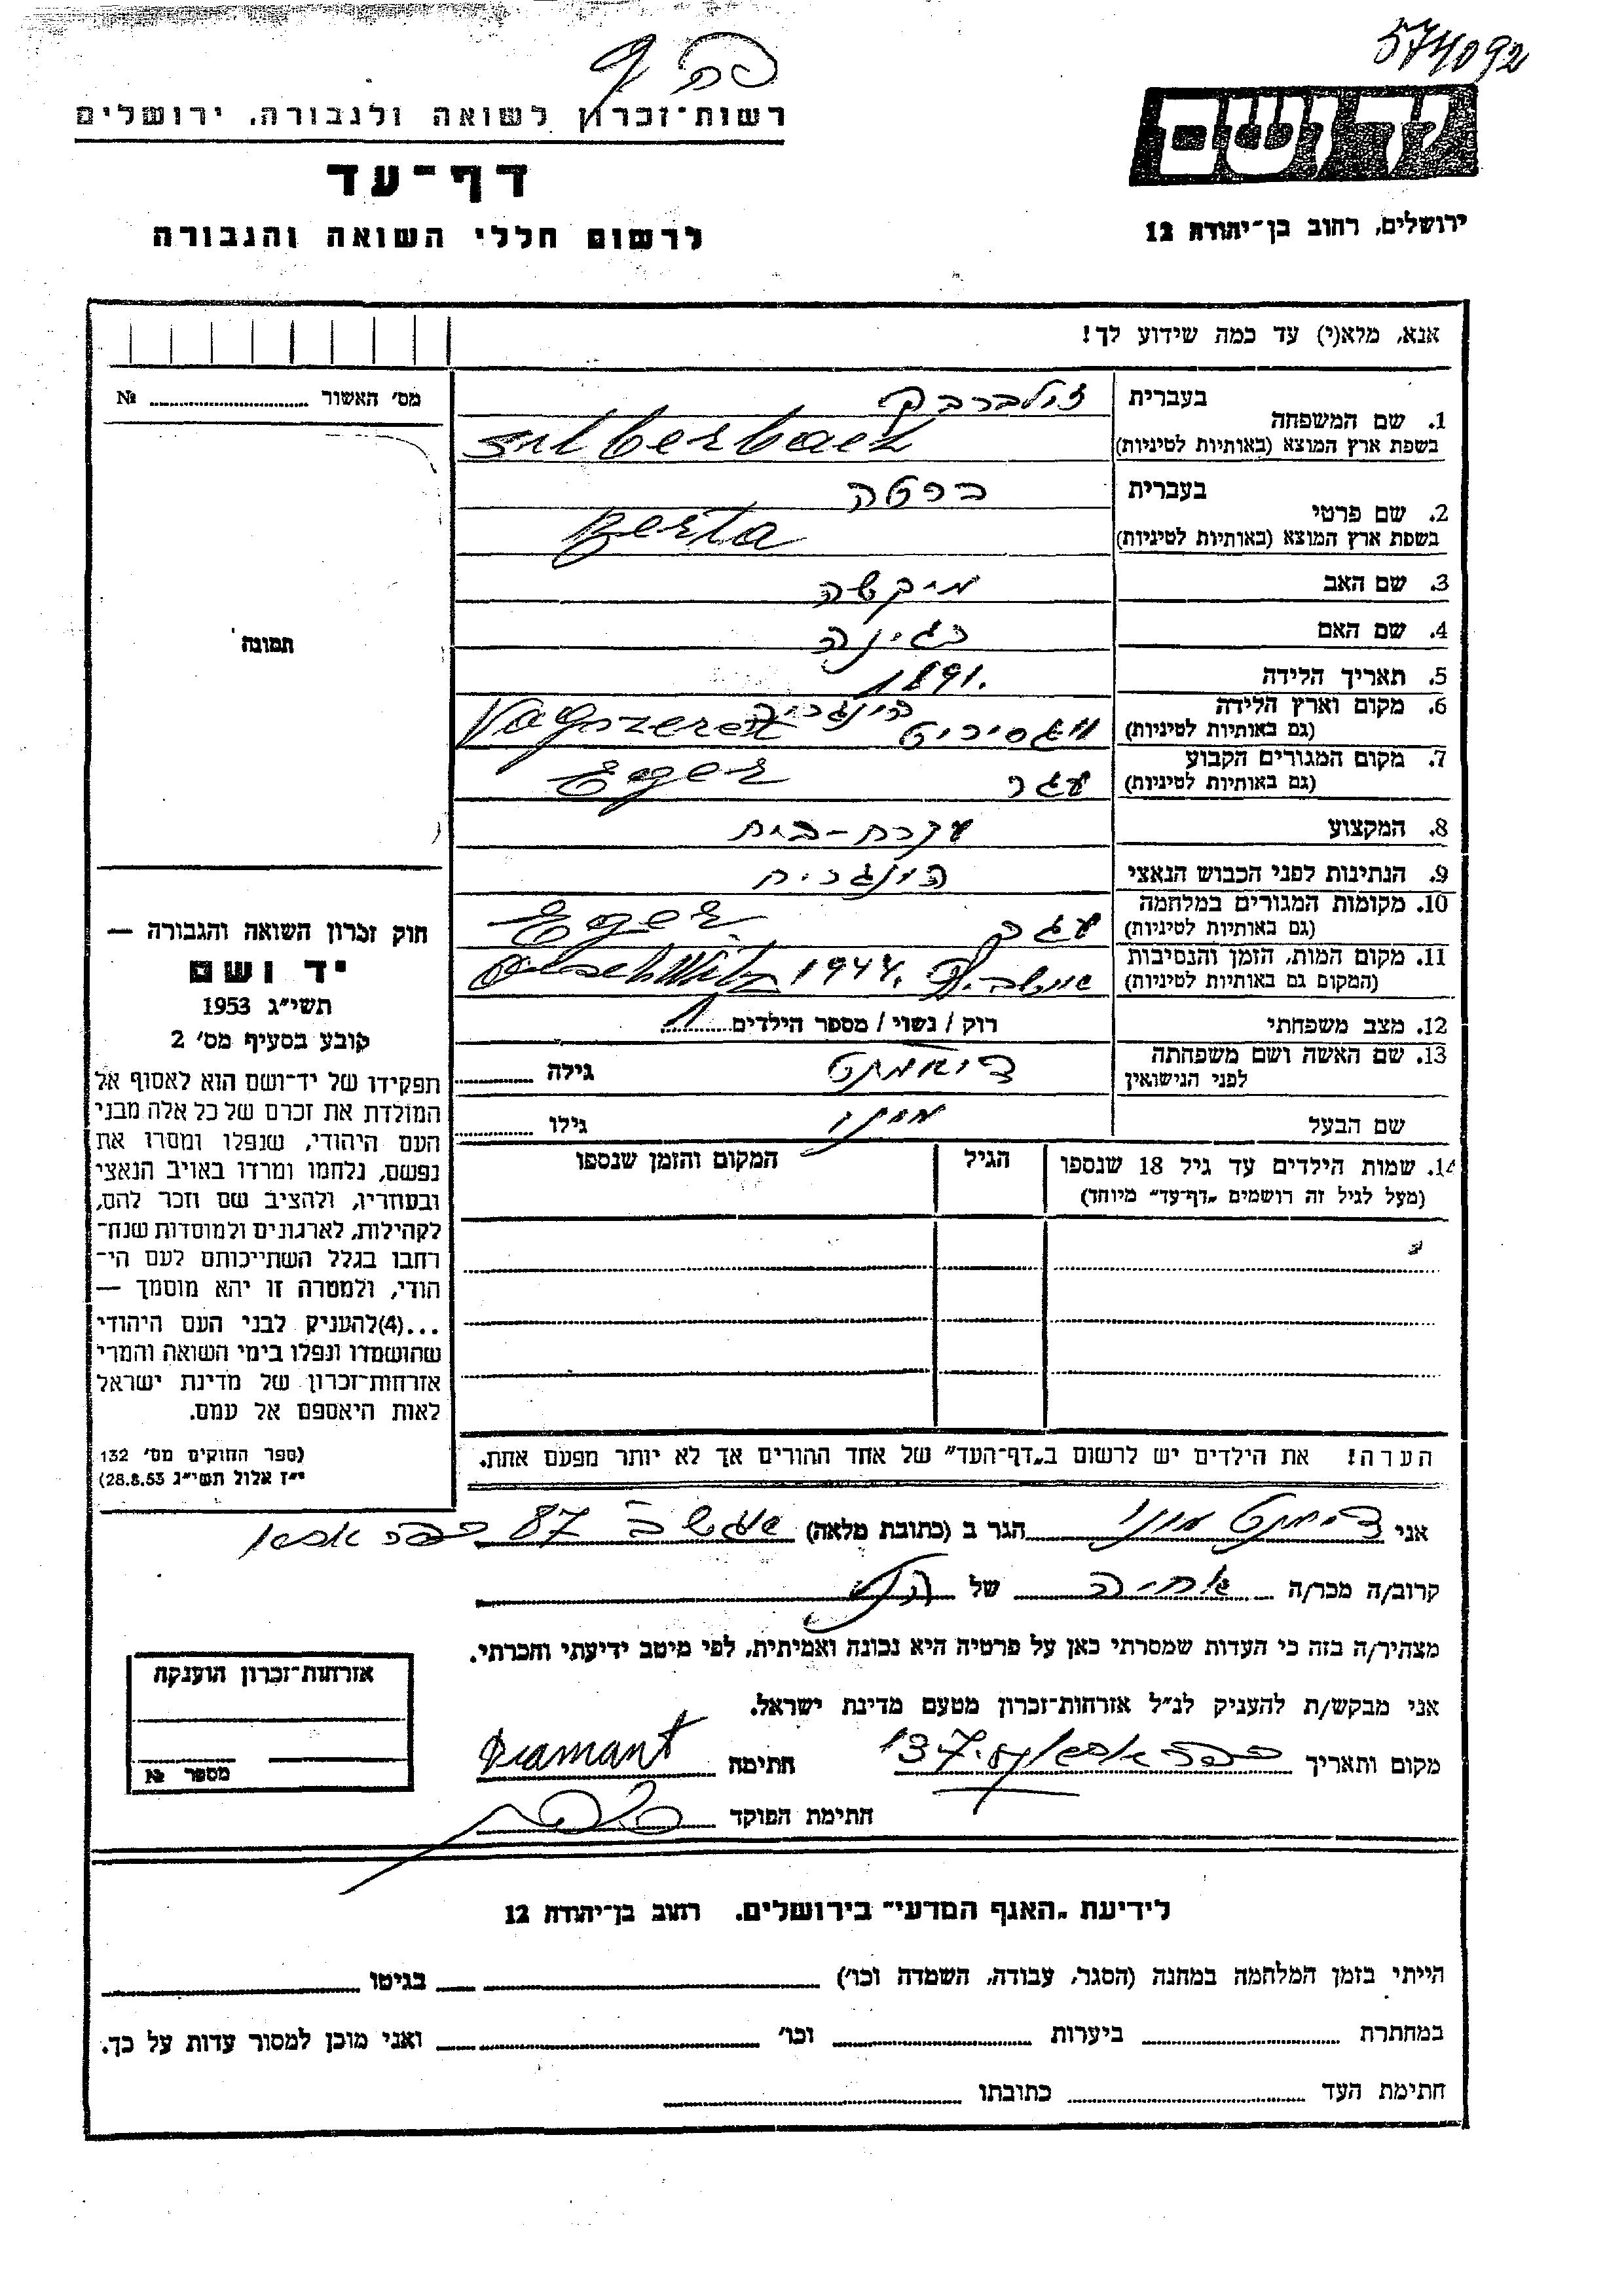 574092
רשות־זכרון לשואה ולגבורה, ירושלים
דף־עד
לרשום חללי השואה והגבורה
ידושם
ירושלים, רחוב בן־יהודה 12
אנא, מלא(י) עד כמה שידוע לך!
מס׳ האשור № 
תמונה
1. שם המשפחה
בעברית זילברבק
בשפת ארץ המוצא (באותיות לטיניות) Silberback
2. שם פרטי
בעברית ברטה
בשפת ארץ המוצא (באותיות לטיניות) Berta
3. שם האב מיקשה
4. שם האם רגינה
5. תאריך הלידה 1891.
6. מקום וארץ הלידה הונגריה
(גם באותיות לטיניות) Vagszered
7. מקום המגורים הקבוע
(גם באותיות לטיניות) עגר Eger
8. המקצוע עקרת-בית
9. הנתינות לפני הכבוש הנאצי הונגרית
10. מקומות המגורים במלחמה
(גם באותיות לטיניות) עגר Eger
11. מקום המות, הזמן והנסיבות
(המקום גם באותיות לטיניות) אושביץ 1944. Auschwitz
12. מצב משפחתי רוק / נשוי / מספר הילדים 1
13. שם האשה ושם משפחתה
לפני הנישואין דיאמנט גילה
שם הבעל גילו
14. שמות הילדים עד גיל 18 שנספו הגיל המקום והזמן שנספו
(מעל לגיל זה רושמים „דף־עד״ מיוחד)
הערה! את הילדים יש לרשום ב„דף־העד״ של אחד ההורים אך לא יותר מפעם אחת.
חוק זכרון השואה והגבורה —
יד ושם
תשי״ג 1953
קובע בסעיף מס׳ 2
תפקידו של יד־ושם הוא לאסוף אל
המולדת את זכרם של כל אלה מבני
העם היהודי, שנפלו ומסרו את
נפשם, נלחמו ומרדו באויב הנאצי
ובעוזריו, ולהציב שם וזכר להם,
לקהילות, לארגונים ולמוסדות שנח־
רחבו בגלל השתייכותם לעם הי־
הודי, ולמטרה זו יהא מוסמך —
...(4)להעניק לבני העם היהודי
שהושמדו ונפלו בימי השואה והמרי
אזרחות־זכרון של מדינת ישראל
לאות היאספם אל עמם.
(ספר החוקים מס׳ 132
י״ז אלול תשי״ג 28.8.53)
אני דימנט הגר ב (כתובת מלאה) 87
קרוב/ה מכר/ה של
מצהיר/ה בזה כי העדות שמסרתי כאן על פרטיה היא נכונה ואמיתית, לפי מיטב ידיעתי והכרתי.
אני מבקש/ת להעניק לנ״ל אזרחות־זכרון מטעם מדינת ישראל.
מקום ותאריך חתימה Diamant
חתימת הפוקד
אזרחות־זכרון הוענקה
מספר №
לידיעת „האגף המדעי״ בירושלים, רחוב בן־יהודה 12
הייתי בזמן המלחמה במחנה (הסגר, עבודה, השמדה וכו׳) בגיטו
במחתרת ביערות וכו׳ ואני מוכן למסור עדות על כך.
חתימת העד כתובתו